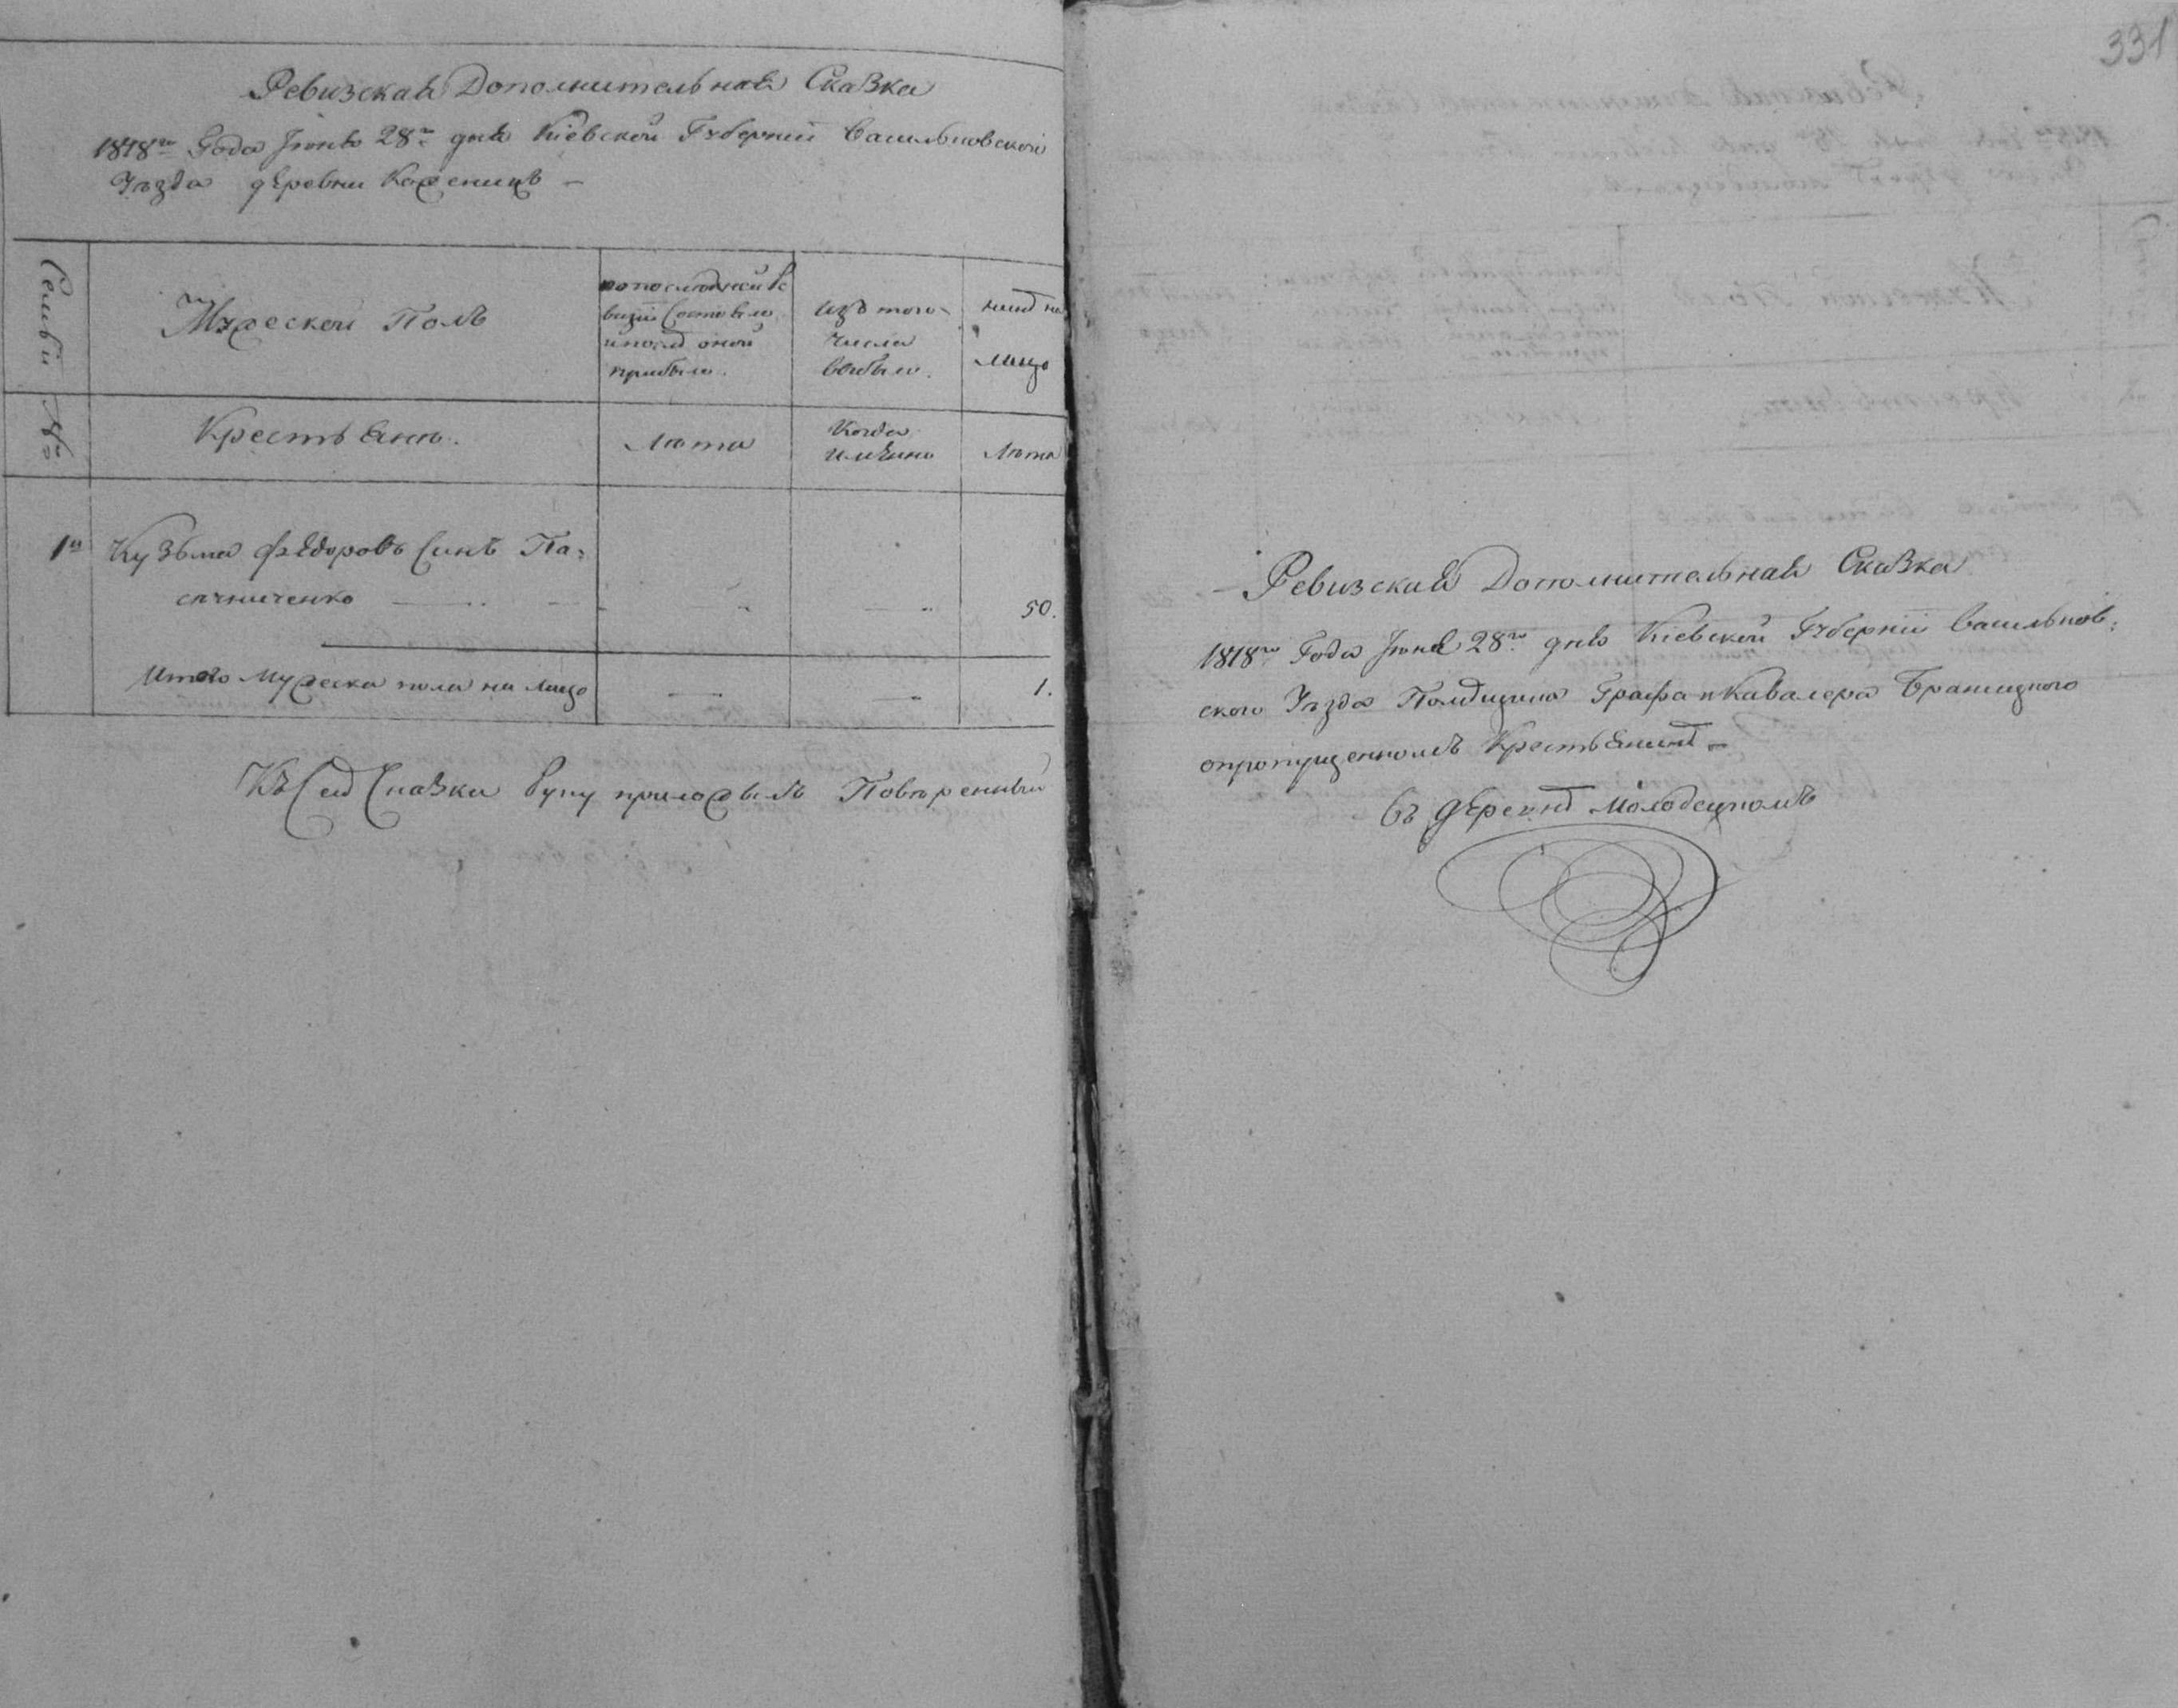 Ревизская Дополнительная Сказка
1818го Года Іюня 28го дня Кіевской Губерніи Васильковской
Уѣзда деревни Каженикъ —
Семьи
Мужеской Полъ
по последней ре
визіи Состояло
и после оной
прибыло.
изъ того
числа
выбыло.
ныне на
лицо
№
Крестьяне.
Лѣта
Когда
имянно
Лѣта
1я Кузьма Федоровъ Синъ Па-
сечниченко 50.
Итого Мужеска пола на лицо 1.
Къ Сей Сказки Руку приложылъ Повѣренный
331
Ревизская Дополнительная Сказка
1818го Года Іюня 28го дня Кіевской Губерніи Васильков-
ского Уѣзда Помещика Графа и Кавалера Браницкого
опропущенномъ Крестьянине —
Въ Деревне Молодецкомъ